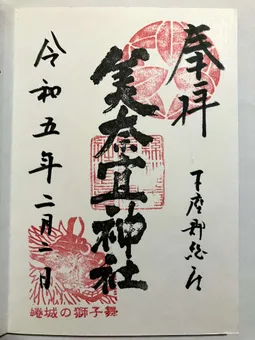 奉拝
下座郡総社
美奈宜神社
令和五年二月一日
蜷城の獅子舞